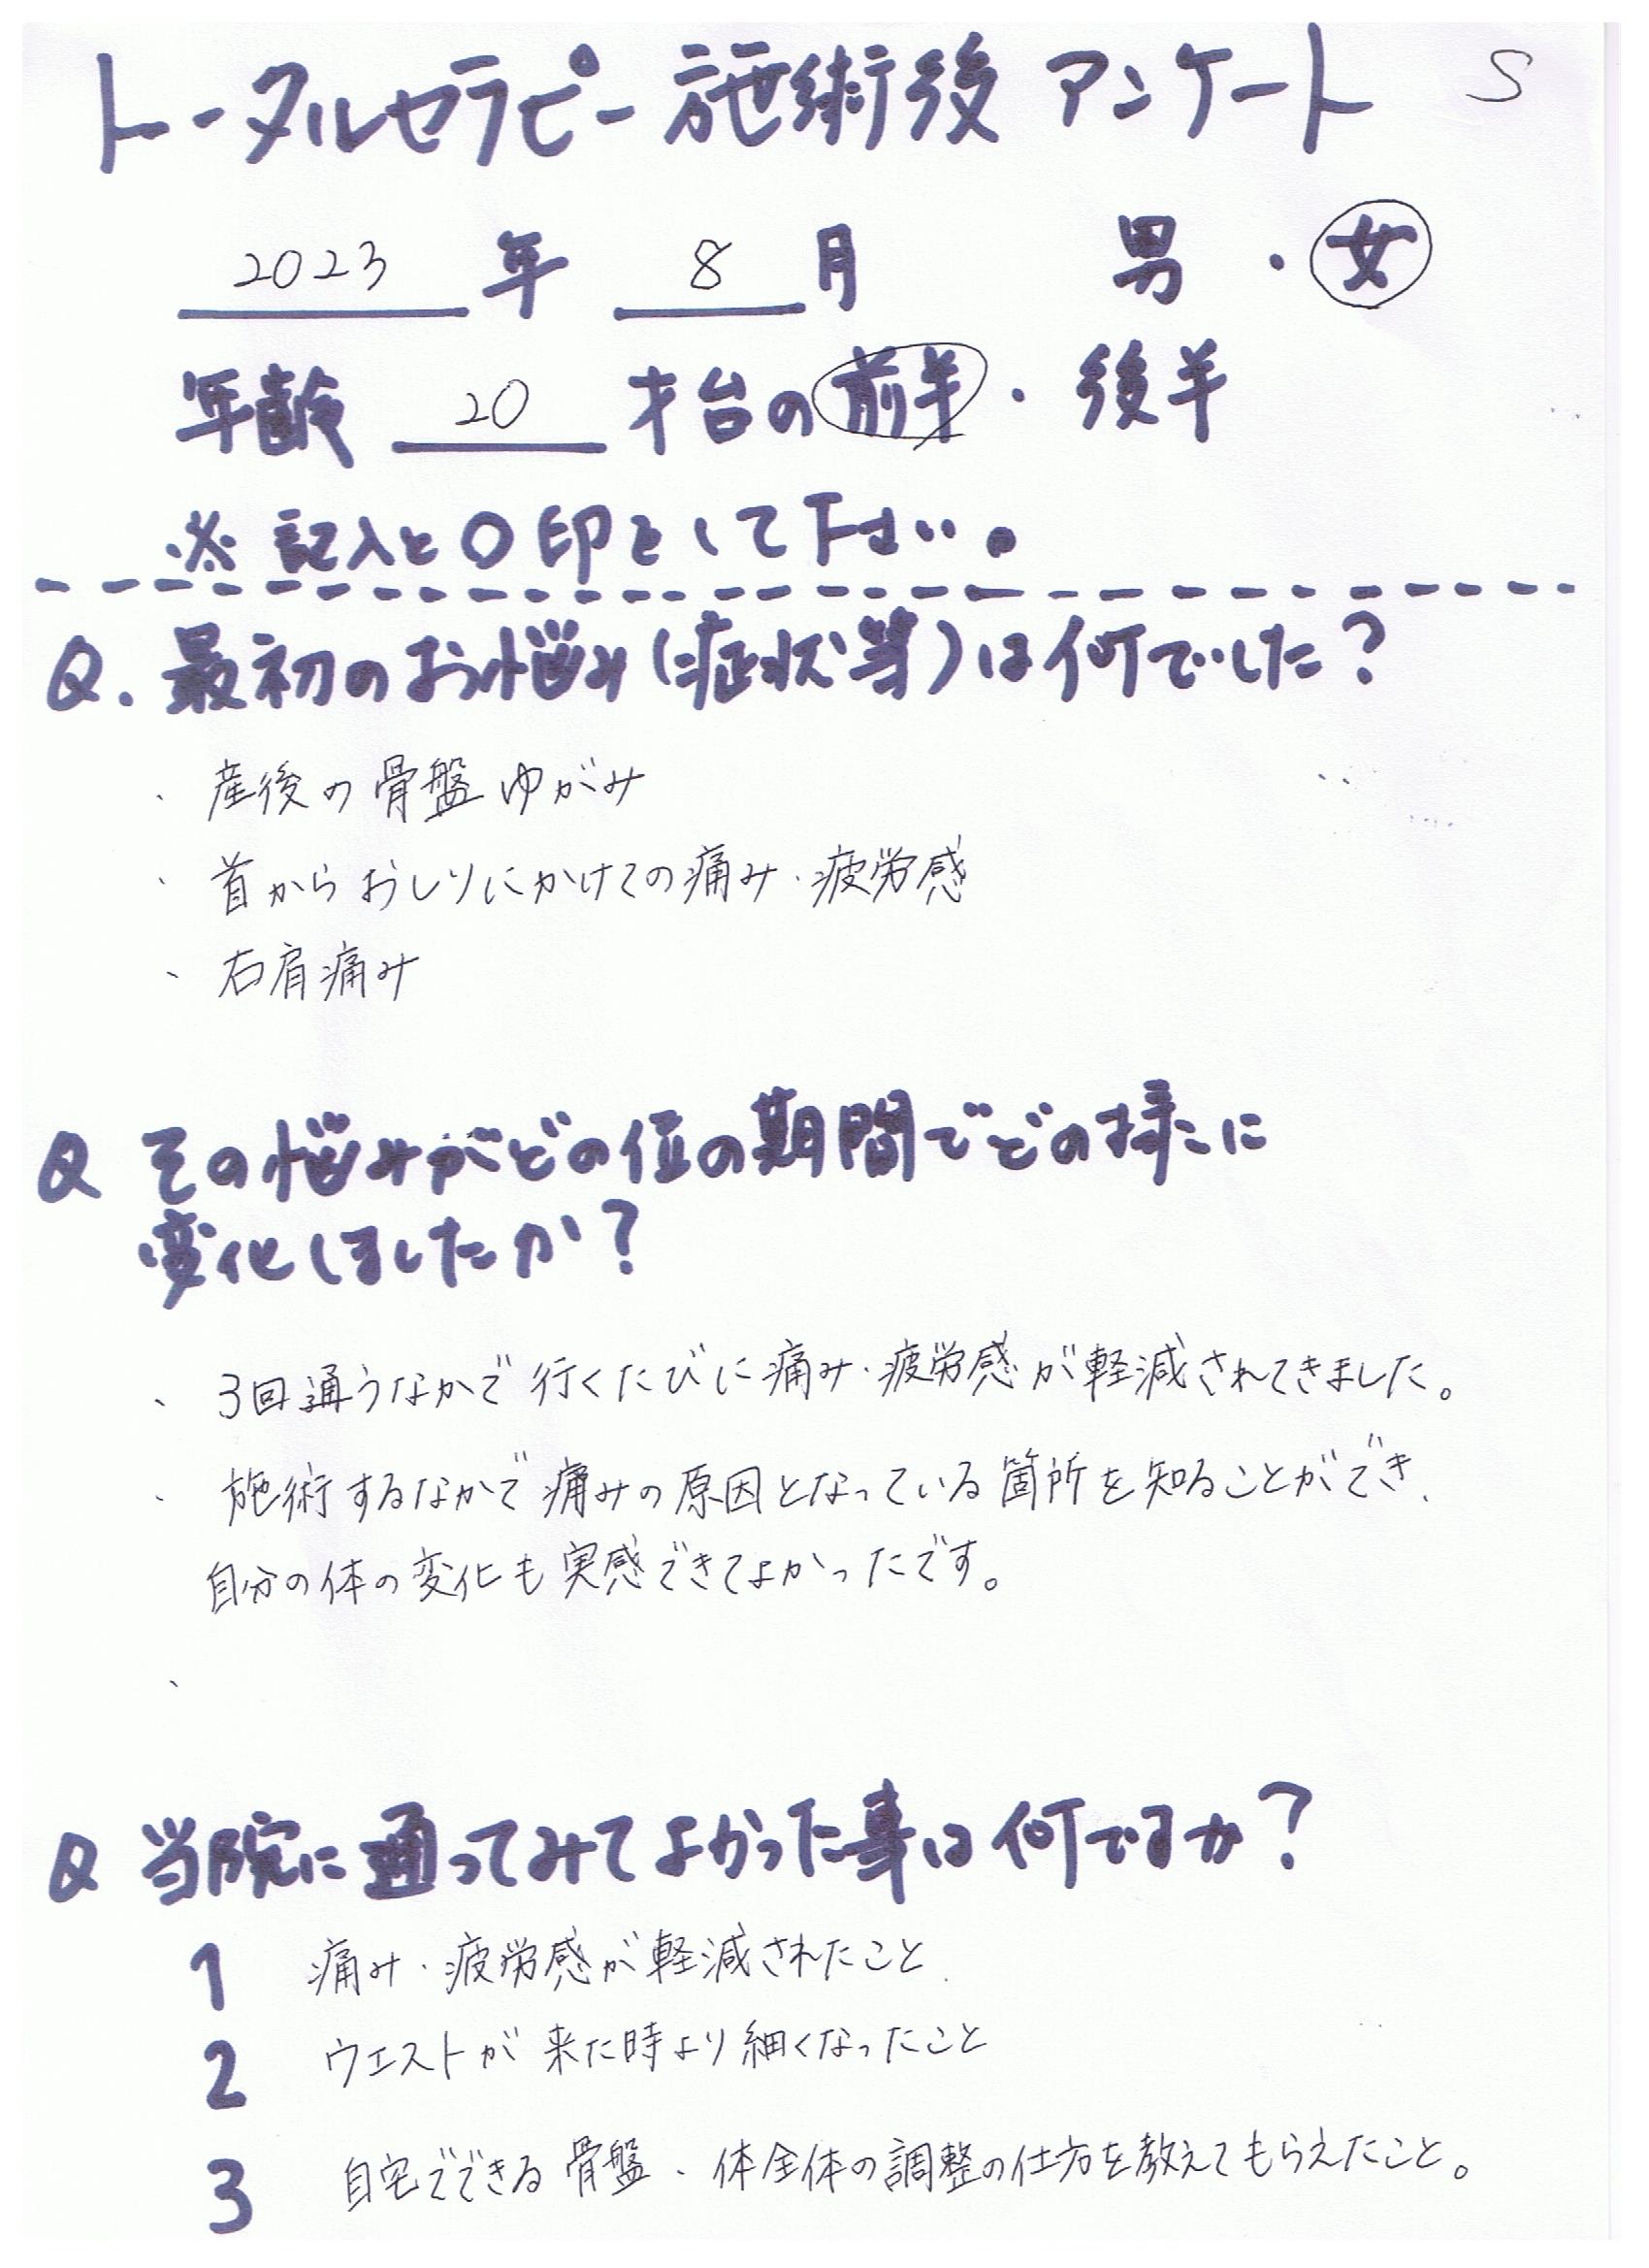 トータルセラピー施術後アンケート S
2023 年 8 月 男・女
年齢 20 才台の前半・後半
※記入と○印をして下さい。
Q.最初のお悩み(症状等)は何でした?
・産後の骨盤ゆがみ
・首からおしりにかけての痛み・疲労感
・右肩痛み
Q その悩みがどの位の期間でどの様に
変化しましたか?
・3回通うなかで行くたびに痛み・疲労感が軽減されてきました。
・施術するなかで痛みの原因となっている箇所を知ることができ、
自分の体の変化も実感できてよかったです。
、
Q 当院に通ってみてよかった事は何ですか?
1 痛み・疲労感が軽減されたこと
2 ウエストが来た時より細くなったこと
3 自宅でできる骨盤、体全体の調整の仕方を教えてもらえたこと。